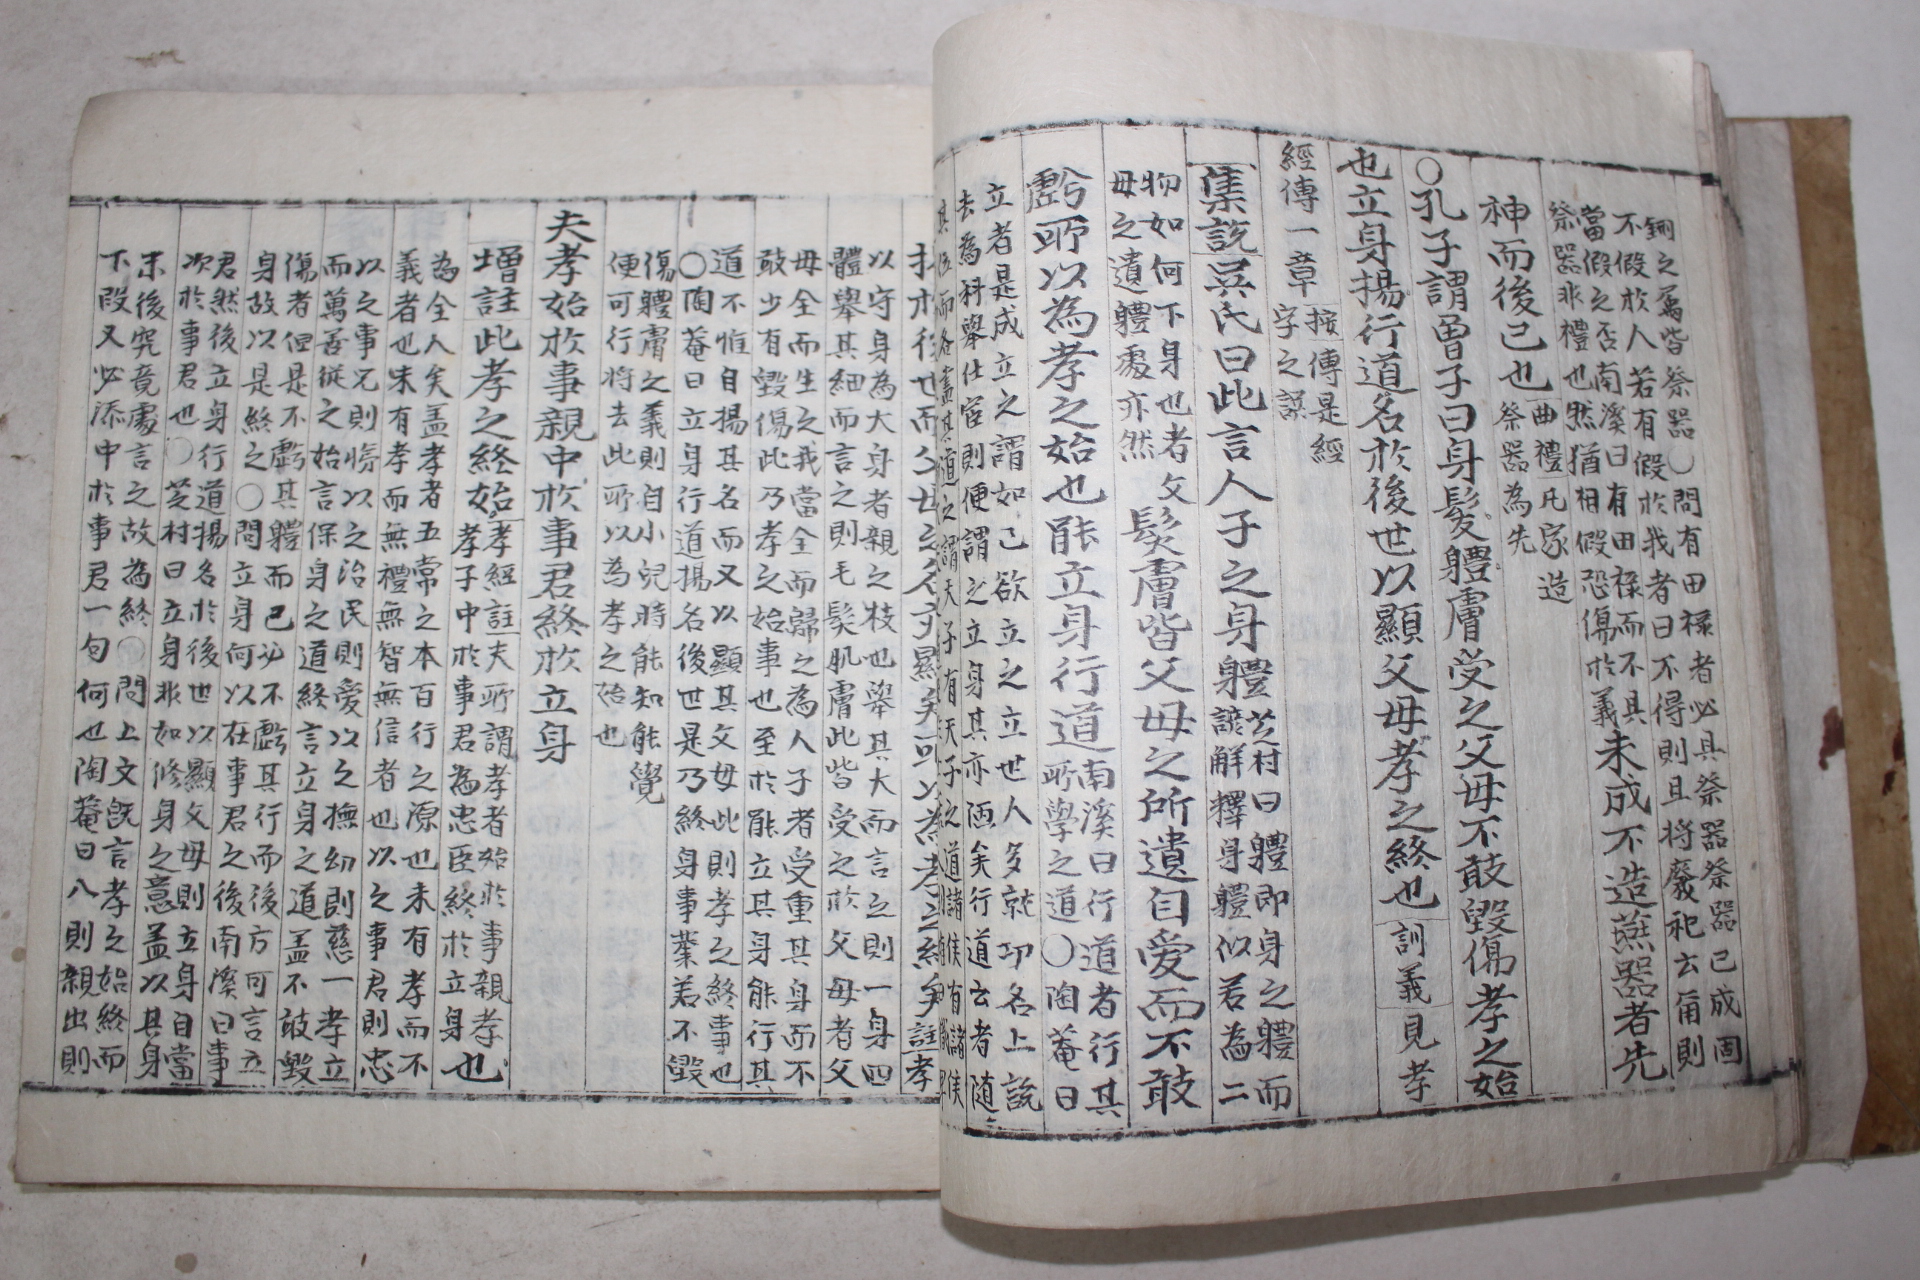 鉶之屬皆祭器○問有田祿者必具祭器祭器已成固
不假於人若有假於我者曰不得則且將廢祀去甭則
當假之否南溪曰有田祿而不具
祭器非禮也然猶相假恐傷於義未成不造燕器者先
神而後己也曲禮凡家造
祭器為先
○孔子謂曾子曰身髮體膚受之父母不敢毀傷孝之始
也立身揚行道名於後世以顯父母孝之終也訓義見孝
經傳一章按傳是經
字之誤
集說吳氏曰此言人子之身體芝村曰體即身之體而
諺解釋身體似若為二
物如何下身也者父
母之遺體處亦然髮膚皆父母之所遺自愛而不敢
虧所以為孝之始也能立身行道南溪曰行道者行其
所學之道○陶菴曰
立者是成立之謂如己欲立之立世人多就功名上說
去為科舉仕宦則便謂之立身其亦陋矣行道云者隨
以守身為大身者親之枝也舉其大而言之則一身四
體舉其細而言之則毛髮肌膚此皆受之於父母者父
母全而生之我當全而歸之為人子者受重其身而不
敢少有毀傷此乃孝之始事也至於能立其身能行其
道不惟自揚其名而又以顯其父母此則孝之終事也
○陶菴曰立身行道揚名後世是乃終身事業若不毀
傷體膚之義則自小兒時能知能覺
便可行將去此所以為孝之始也
夫孝始於事親中於事君終於立身
增註此孝之終始孝經註夫所謂孝者始於事親孝
子中於事君為忠臣終於立身也
為全人矣盖孝者五常之本百行之源也未有孝而不
義者也未有孝而無禮無智無信者也以之事君則忠
以之事兄則悌以之治民則愛以之撫幼則慈一孝立
而萬善從之始言保身之道終言立身之道盖不敢毀
傷者但是不虧其體而已必不虧其行而後方可言立
身故以是終之○問立身何以在事君之後南溪曰事
君然後立身行道揚名於後世以顯父母則立身自當
次於事君也○芝村曰立身非如修身之意盖以其身
末後究竟處言之故為終○問上文旣言孝之始終而
下段又必添中於事君一句何也陶菴曰八則親出則